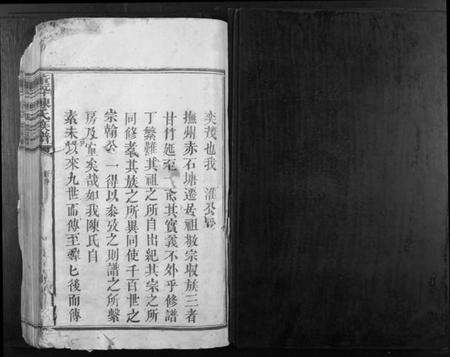 奕茂也我
撫州赤石塘遷居祖敬宗收族三者
其實義不外乎修譜
丁繁難其祖之所自出紀其宗之所
同修者其族之所異同使千百世之
宗翰公一得以參攷之則譜之所繫
房及矣哉如我陳氏自
素未以來九世而傳至七後而傳
陳氏宗譜